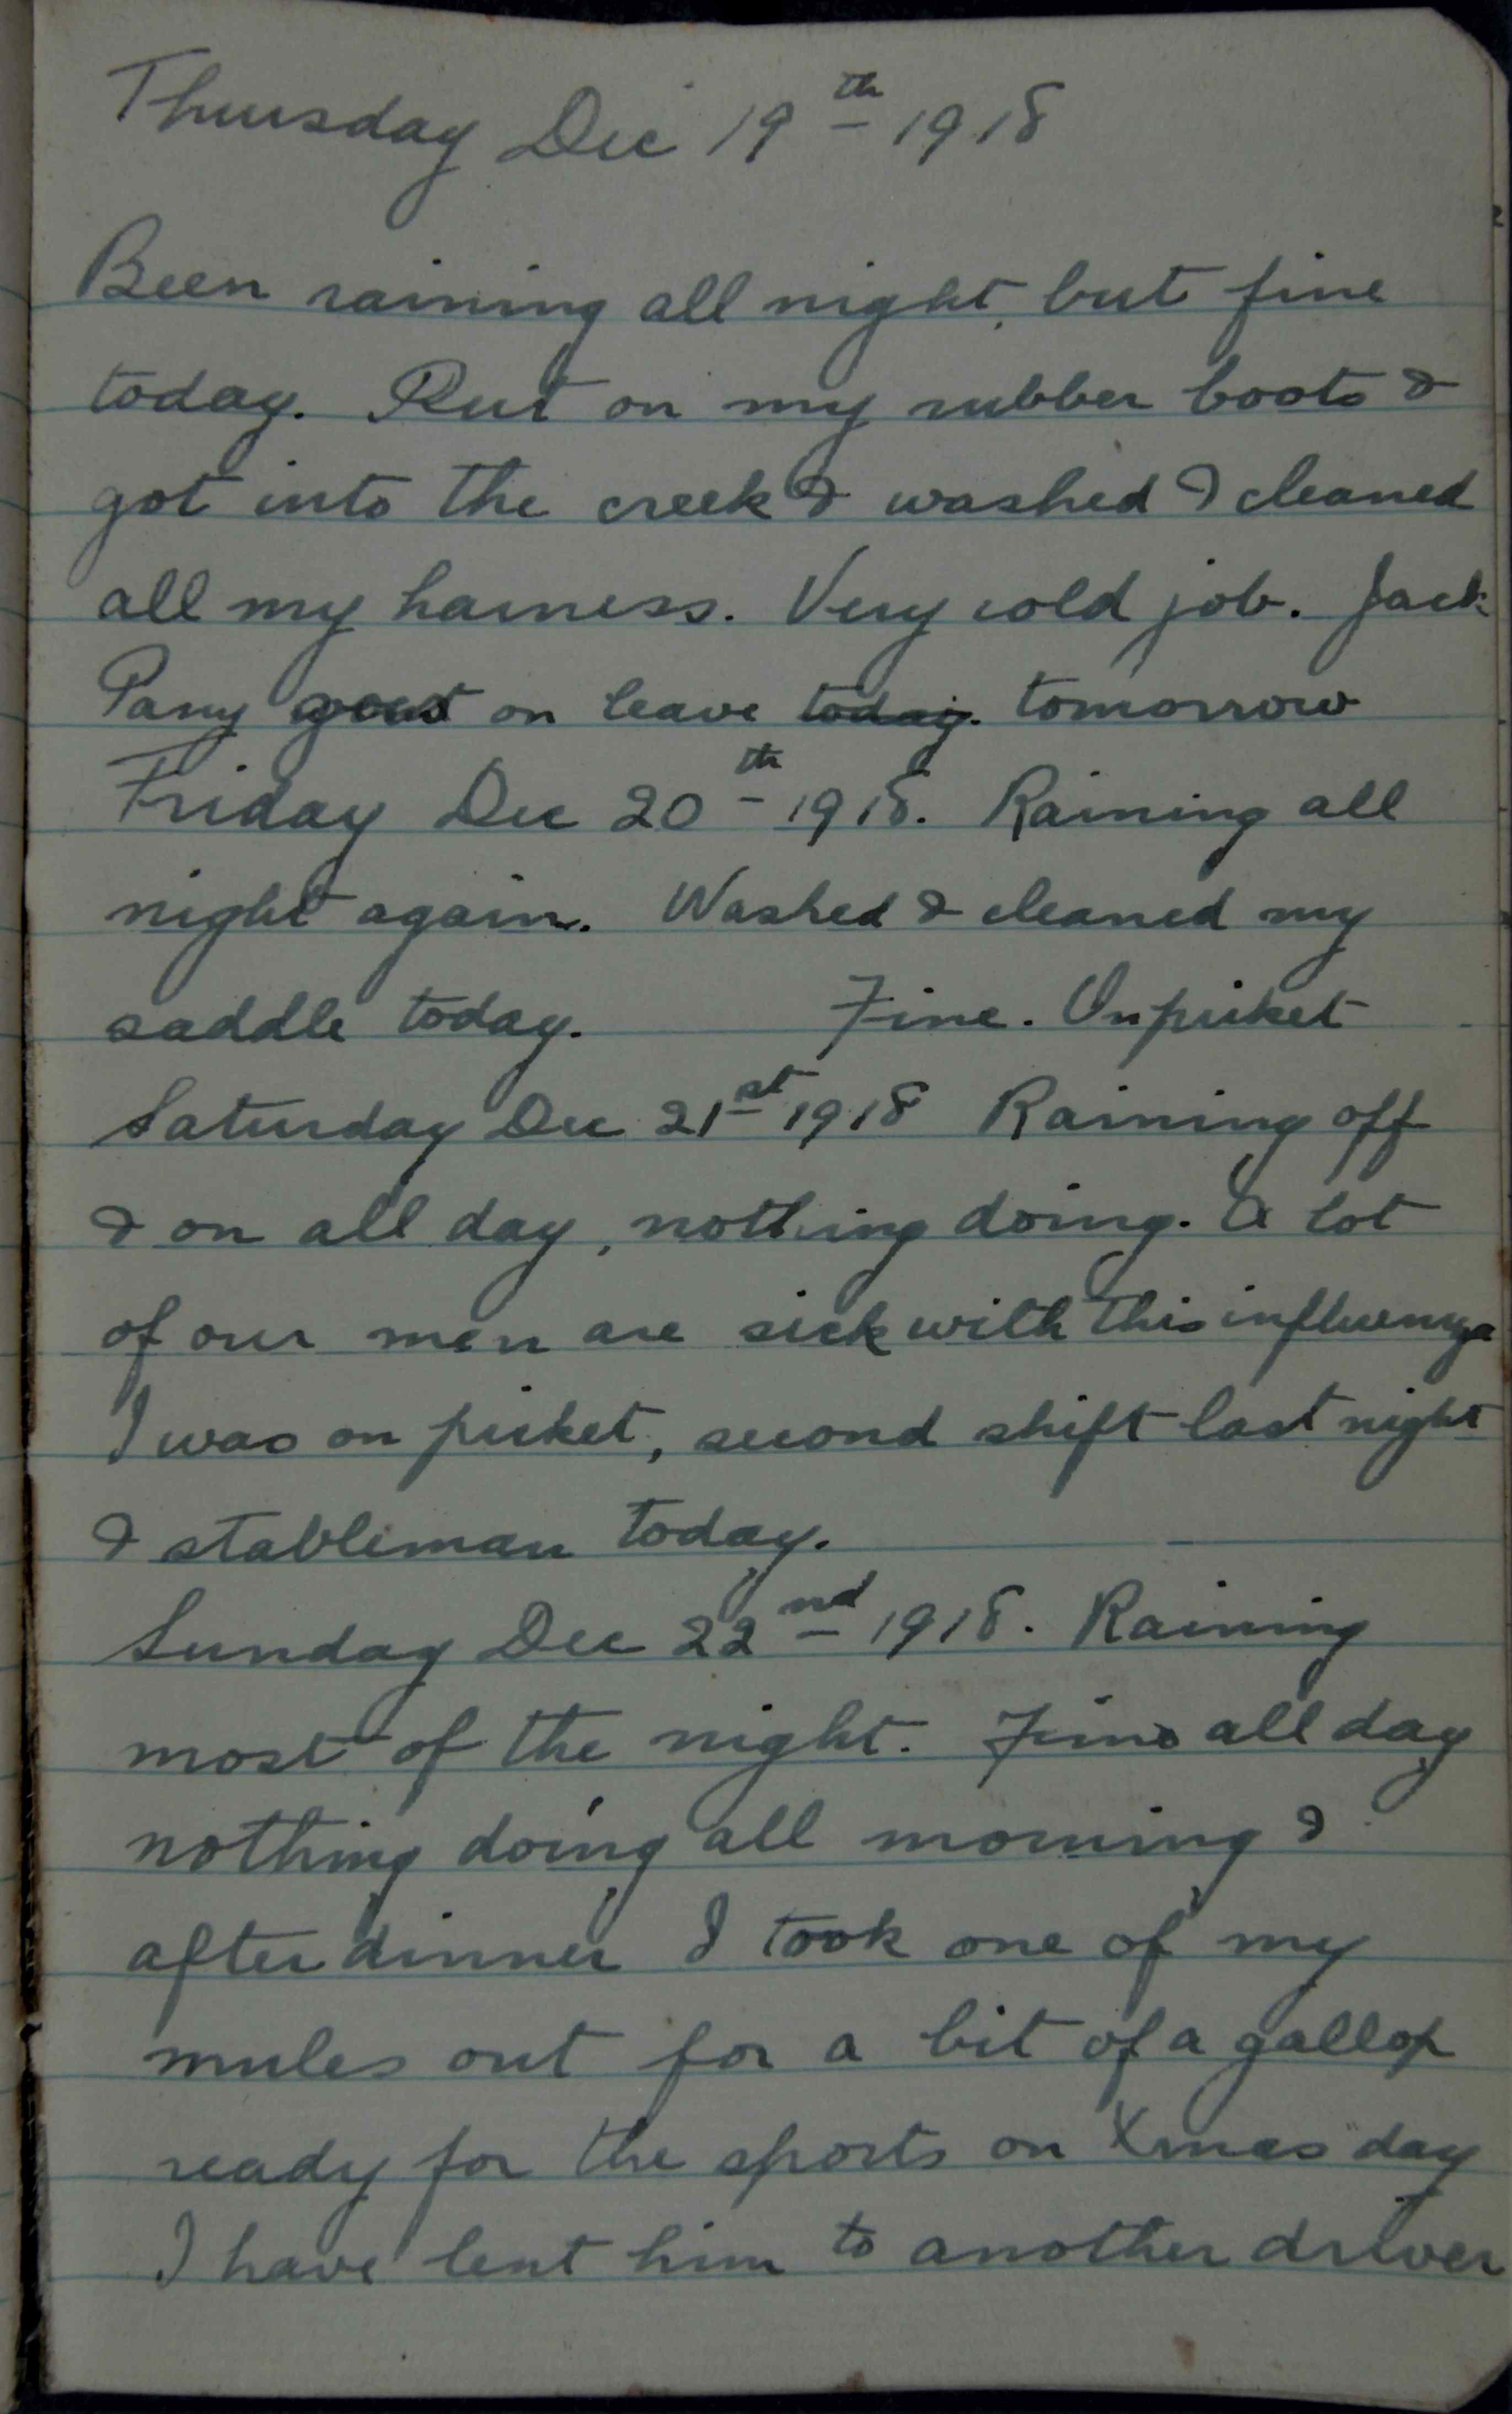 Thursday Dec 19th 1918
Been raining all night, but fine
today. Put on my rubber boots &
got into the creek & washed & cleaned
all my harness. Very cold job. Jack
Parry goes on leave today. tomorrow
Friday Dec 20th 1918. Raining all
night again. Washed & cleaned my
saddle today. Fine. On picket
Saturday Dec 21st 1918 Raining off
& on all day, nothing doing. A lot
of our men are sick with this influenza
I was on picket, second shift last night
& stableman today.
Sunday Dec 22nd 1918. Raining
most of the night. Fine all day
nothing doing all morning &
after dinner I took one of my
mules out for a bit of a gallop
ready for the sports on Xmas day
I have lent him to another driver